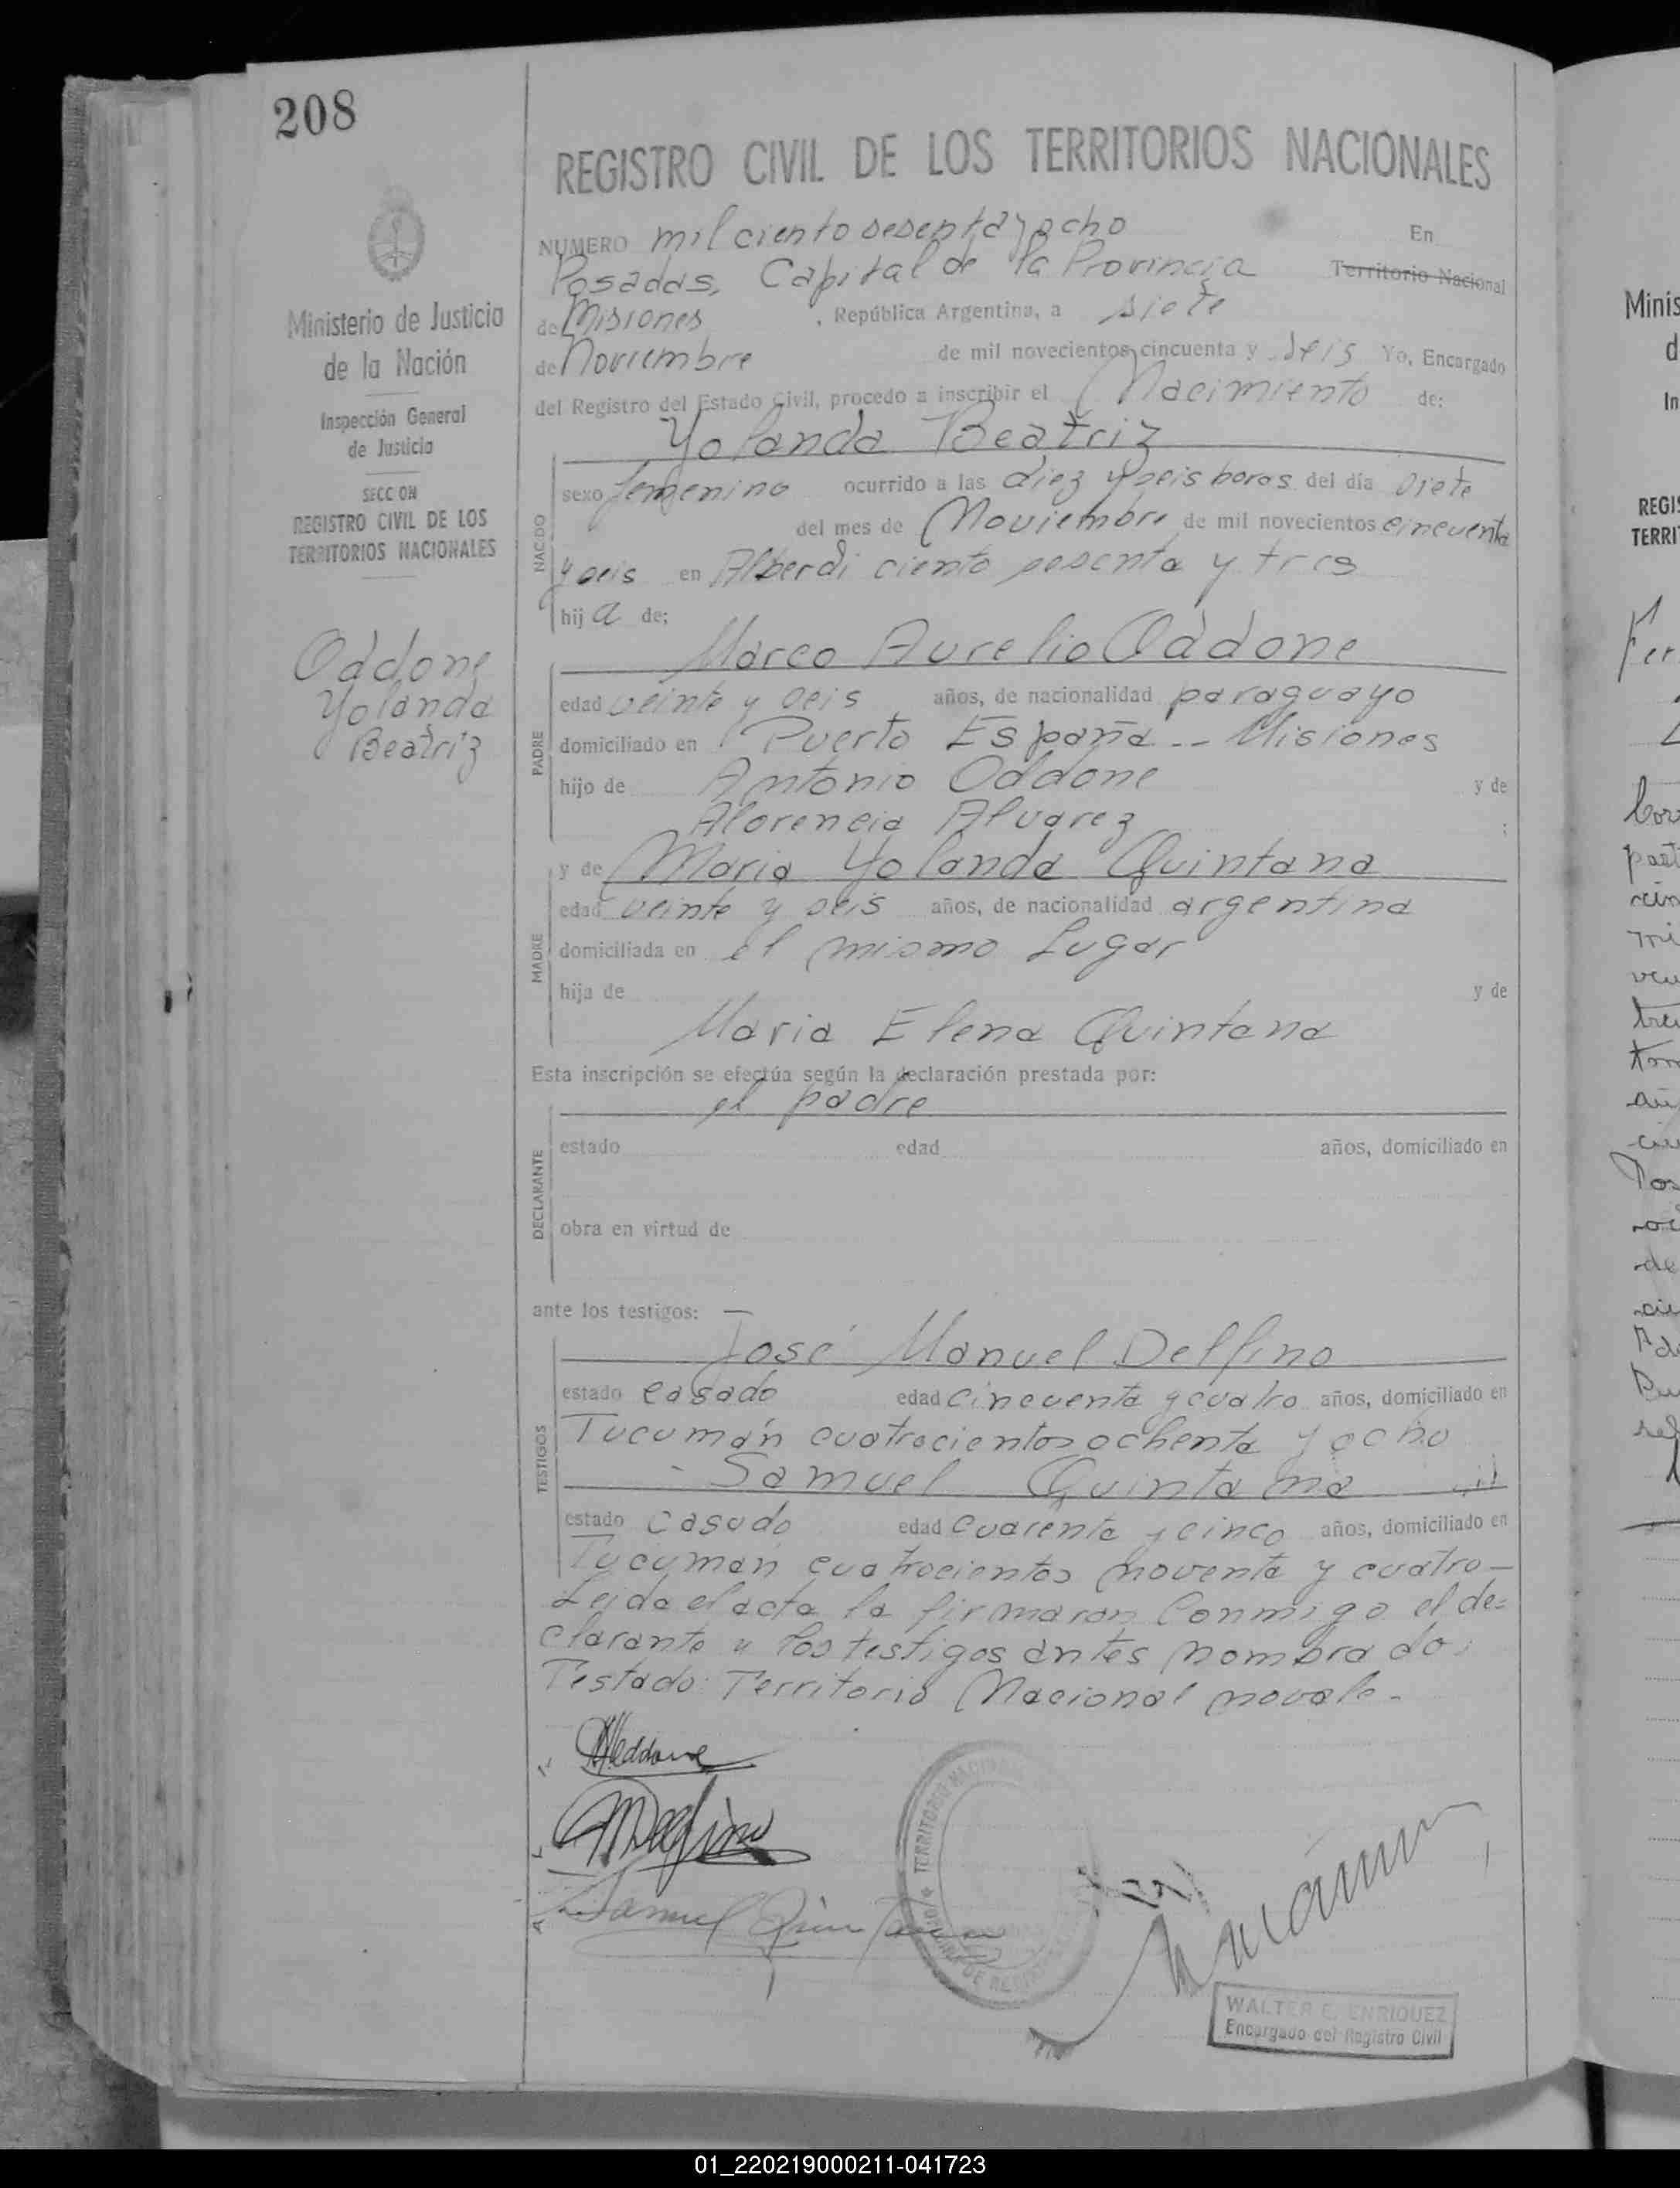 208
REGISTRO CIVIL DE LOS TERRITORIOS NACIONALES
NUMERO mil ciento sesenta y ocho En
Posadas, Capital de la Provincia Territorio Nacional
de Misiones, República Argentina, a siete
de Noviembre de mil novecientos cincuenta y seis Yo, Encargado
del Registro del Estado Civil, procedo a inscribir el Nacimiento de:
Yolanda Beatriz
NACIDO
sexo femenino ocurrido a las diez y seis horas del día siete
del mes de Noviembre de mil novecientos cincuenta
y seis en Alberdi ciento sesenta y tres
hij a de;
Marco Aurelio Oddone
PADRE
edad veinte y seis años, de nacionalidad paraguayo
domiciliado en Puerto España -- Misiones
hijo de Antonio Oddone y de
Florencia Alvarez ;
y de Maria Yolanda Quintana
MADRE
edad veinte y seis años, de nacionalidad argentina
domiciliada en el mismo Lugar
hija de y de
Maria Elena Quintana
Esta inscripción se efectúa según la declaración prestada por:
el padre
DECLARANTE
estado edad años, domiciliado en
obra en virtud de
ante los testigos: —
José Manuel Delfino
TESTIGOS
estado casado edad cincuenta y cuatro años, domiciliado en
Tucumán cuatrocientos ochenta y ocho
Samuel Quintana
estado casado edad cuarenta y cinco años, domiciliado en
Tucumán cuatrocientos noventa y cuatro—
Leida el acta la firmaron conmigo el de=
clarante y los testigos antes nombrados
Testado: Territorio Nacional no vale-
Ministerio de Justicia
de la Nación
Inspección General
de Justicia
SECCION
REGISTRO CIVIL DE LOS
TERRITORIOS NACIONALES
Oddone
Yolanda
Beatriz
Oddone
Delfino
Samuel Quintana
TERRITORIO NACIONAL
WALTER E. ENRIQUEZ
Encargado del Registro Civil
Minis
d
In
REGIS
TERRI
Fer
01_220219000211-041723